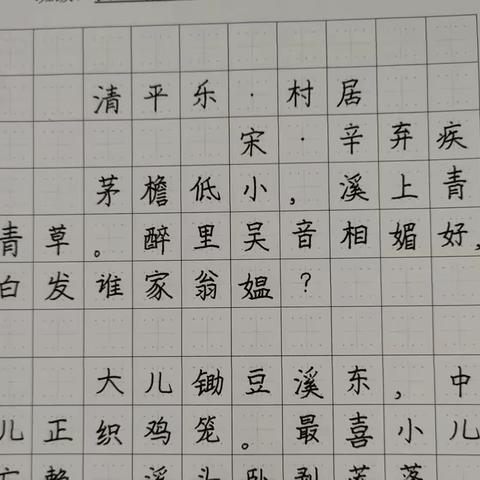 清平乐·村居
宋·辛弃疾
茅檐低小，溪上青
青草。醉里吴音相媚好，
白发谁家翁媪？
大儿锄豆溪东，中
儿正织鸡笼。最喜小儿
亡赖 溪头卧剥莲